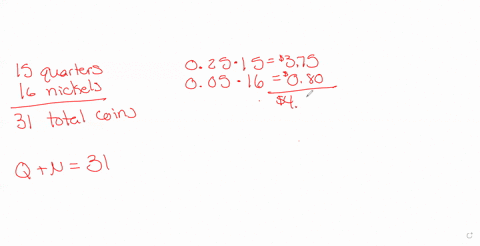 15 quarters
16 nickels
31 total coins
Q + N = 31
0.25 · 15 = $3.75
0.05 · 16 = $0.80
$4.